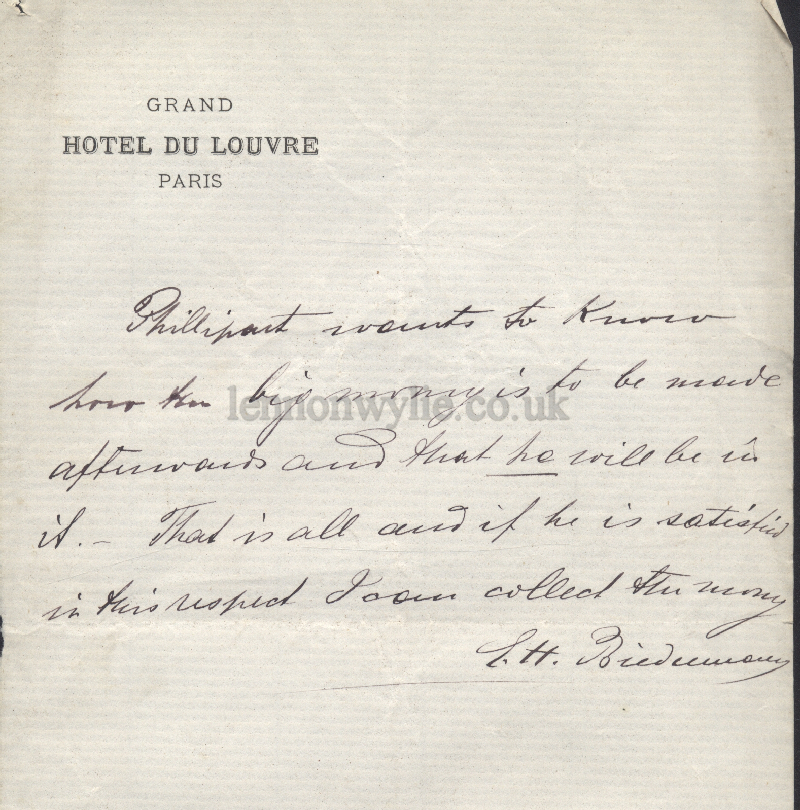 GRAND
HOTEL DU LOUVRE
PARIS
Phillipart wants to Know
how the big mony is to be made
lennonwylie.co.uk
afterwards and that he will be in
it. – That is all and if he is satisfied
in this respect I can collect the mony
E. H. Biedermann